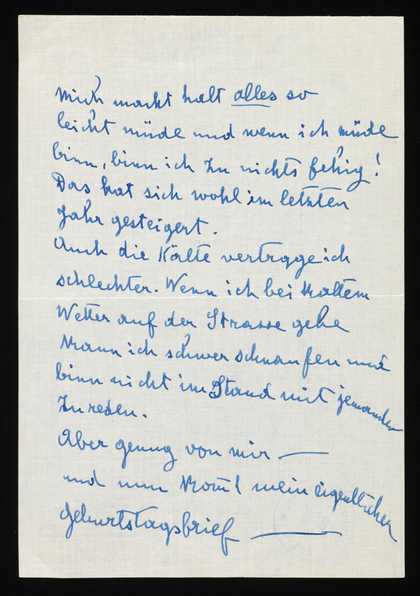 Mich macht halt alles so
leicht müde und wenn ich müde
binn, binn ich zu nichts fehig!
Das hat sich wohl im letzten
Jahr gesteigert.
Auch die Kälte vertrage ich
schlechter. Wenn ich bei kaltem
Wetter auf der Strasse gehe
kann ich schwer schnaufen und
binn nicht im Stand mit jemanden
zu reden.
Aber genug von mir —
und nun kommt mein eigentlicher
Geburtstagsbrief —